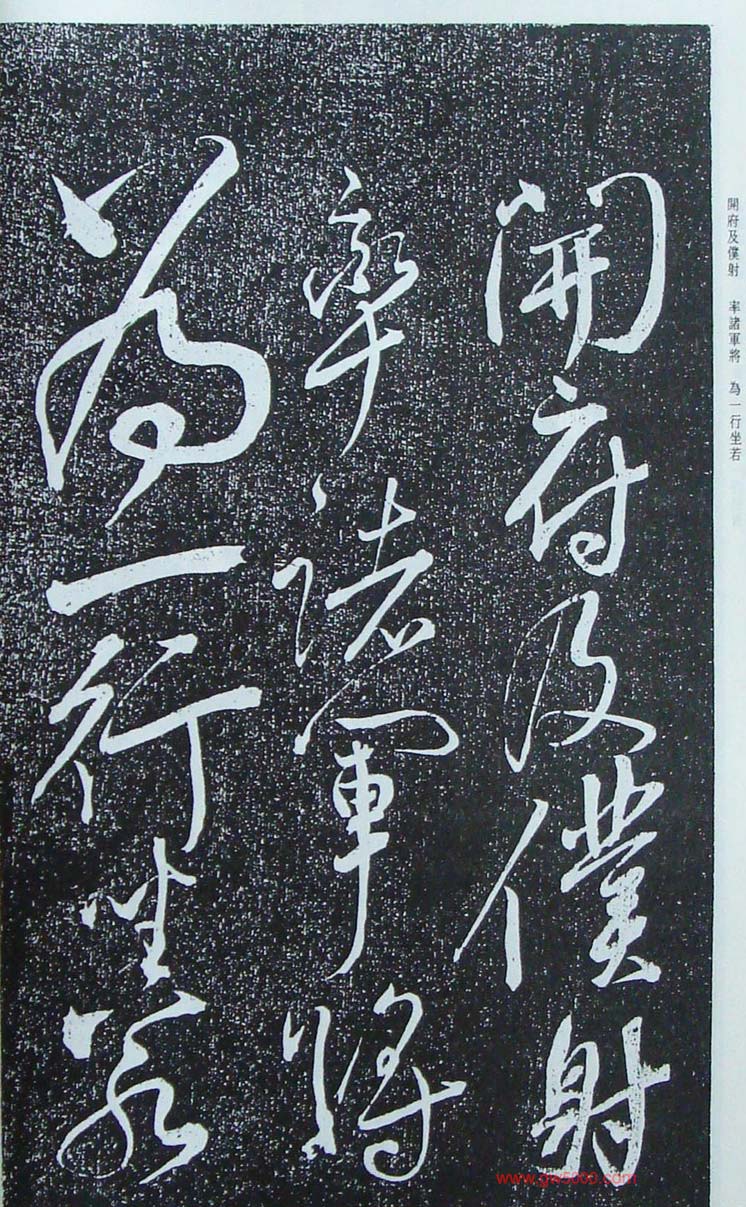 開府及僕射　率諸軍將　為一行坐若
開府及僕射
率諸軍將
為一行坐若
www.gw5000.com